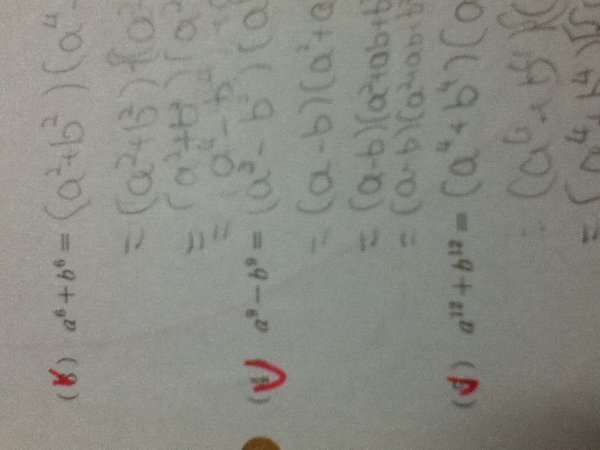 a⁶ + b⁶ = (a² + b²)(a⁴ -
= (a² + b²)
= (a² + b²)(a²
=
a⁶ − b⁶ = (a³ - b³)(a
= (a - b)(a² + a
= (a-b)(a²+ab+b
= (a-b)(a²+ab+b²
a¹² + b¹² = (a⁴ + b⁴)(a
(a⁴ + b⁴)(
= (a⁴ + b⁴)(